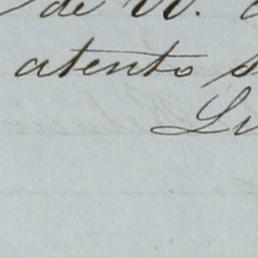 de W.
atento s
Lu